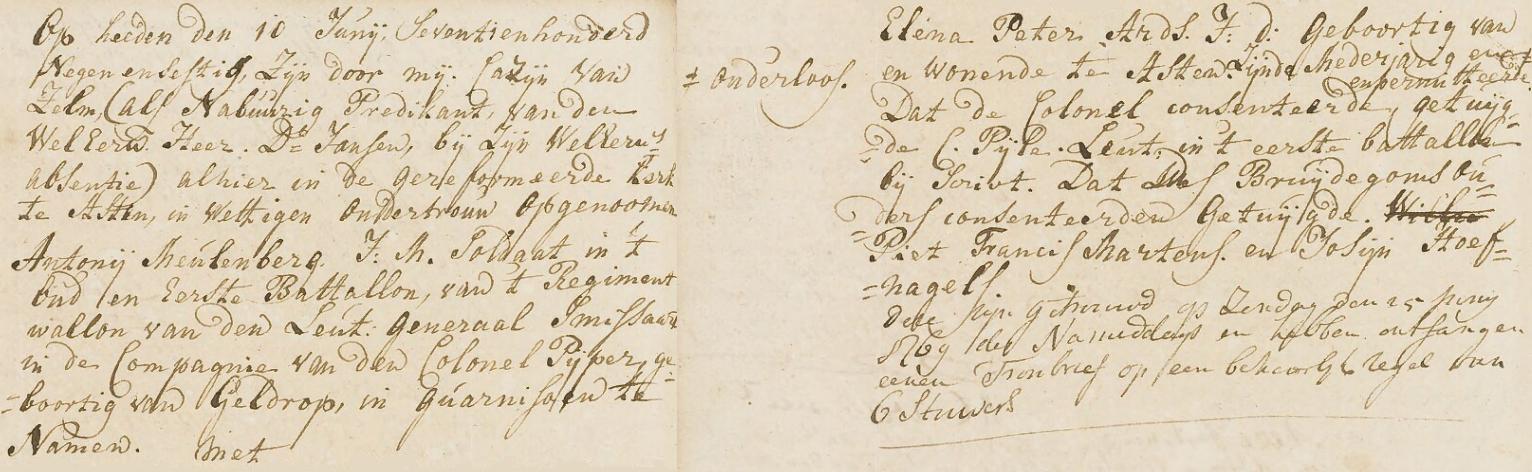 Op heeden den 10 Junij, Seventienhonderd
Negen en sestig, Zijn door mij. Casijn van
Zelm, (als Nabuurig Predikant, van den
WelEerw. Heer. Ds Jansen, bij Zijn WelEerws
absentie) alhier in de gereformeerde kerk
te Asten, in Wettigen Ondertrouw Opgenoomen
Antonij Meulenberg. J: M. Soldaat in 't
Oud en Eerste Battallon, van 't Regiment
wallon van den Leut: Generaal Smissaart
in de Compagnie van den Colonel Pijper, ge=
=boortig van Geldrop, in Guarnisoen te
Namen. met
Elena Peter Ards. J: d: Geboortig van
en Wonende te Asten. Zijnde Mederjarig en
ouderloos.
en permitteerde
Dat de Colonel consenteerde, getuijg=
=de C. Pijpe. Leut: in 't eerste battallon
bij Scrivt. Dat des Bruijdegoms ou=
=ders consenteerden Getuijgde.
Piet Francis Martens. en Josijn Hoef=
=nagels
Dese sijn getrouwd op Zondag den 25 junij
1769 des Namiddags en hebben ontfangen
eenen Troubrief op een behoorlijk zegel van
6 Stuivers